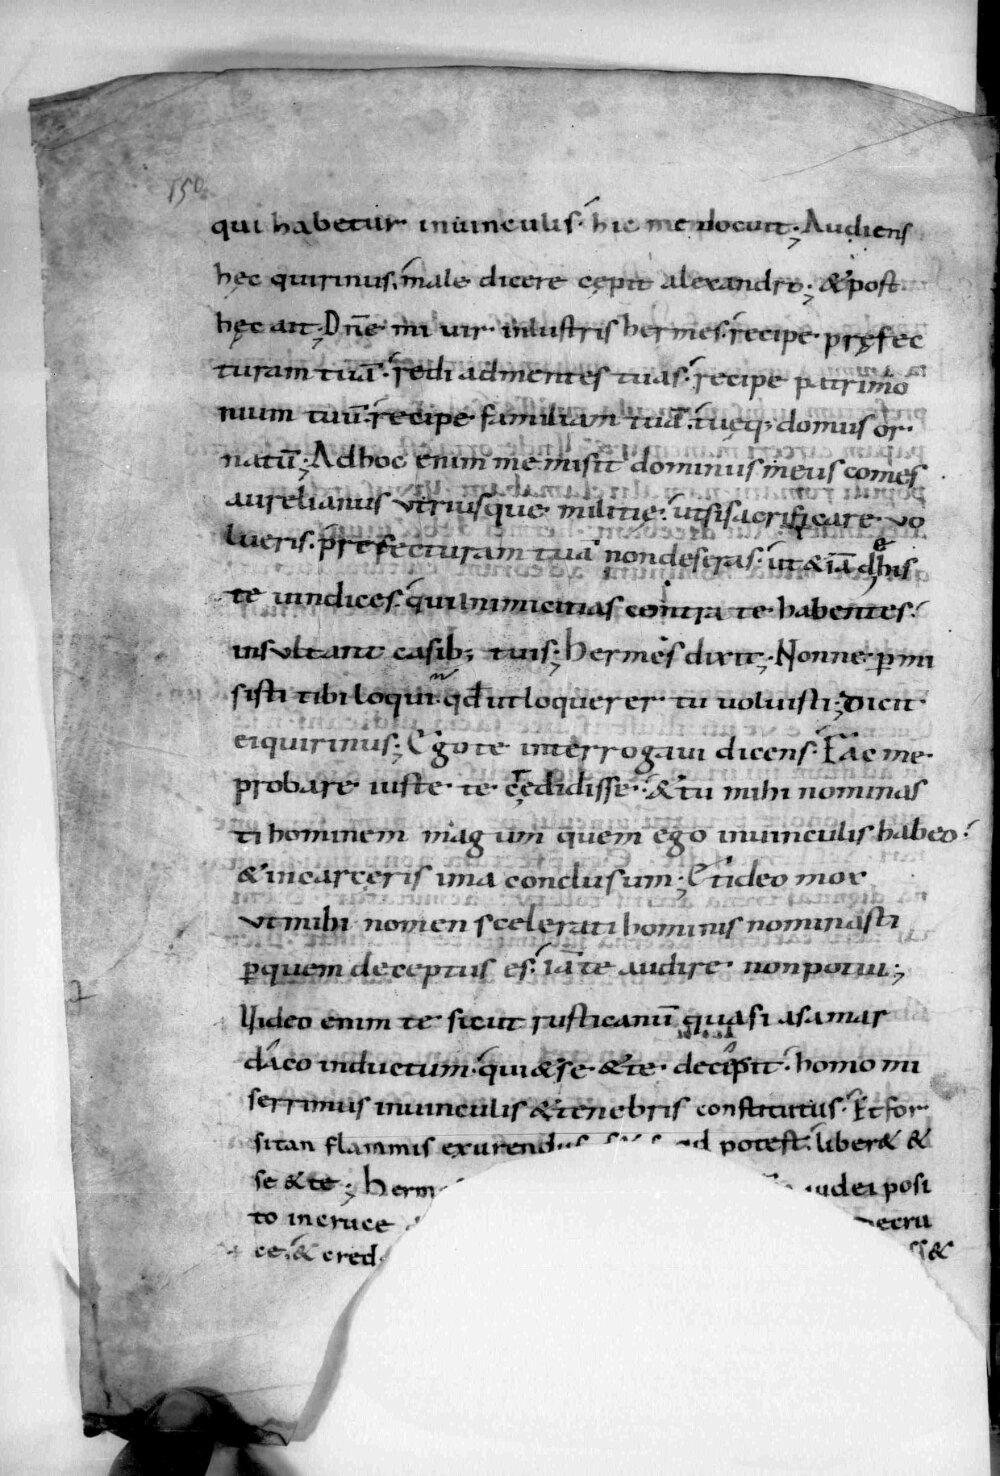 150
qui habetur inuinculis· hic me docuit; Audiens
hęc quirinus, male dicere cępit alexandro; &post
hęc ait; Dn̄e mi uir inlustris hermes· recipe pręfec
turam tuā· redi admentes tuas· recipe patrimo
nium tuū· recipe familiam tuā· tuęq; domus or·
natū; Adhoc enim me misit dominus meus comes
aurelianus utriusque militię· utsisacrificare uo
lueris· prefecturam tuā nondeseras· ut&iā dehis
te uindices· qui inimicitias contra te habentes·
insultant casib; tuis; hermes dixit; Nonne· ꝑmi
sisti tibi loqui· qd̄ ut loquerer tu uoluisti; Dicit
ei quirinus; Ego te interrogaui dicens· Fac me·
probare iuste te crędidisse· &tu mihi nominas
ti hominem magum quem ego inuinculis habeo·
&incarceris ima conclusum; Et ideo mox
ut mihi nomen scelerati hominis nominasti
ꝑquem deceptus es· iā te audire nonpotui;
Uideo enim te sicut rusticanū quasi asamar
daco inductum· qui&se &te decipit· homo mi
serrimus inuinculis &tenebris constitutus· Et for
sitan flammis exurendus potest· liber& &
se &te; iudei posi
to incruce cru
ce· &